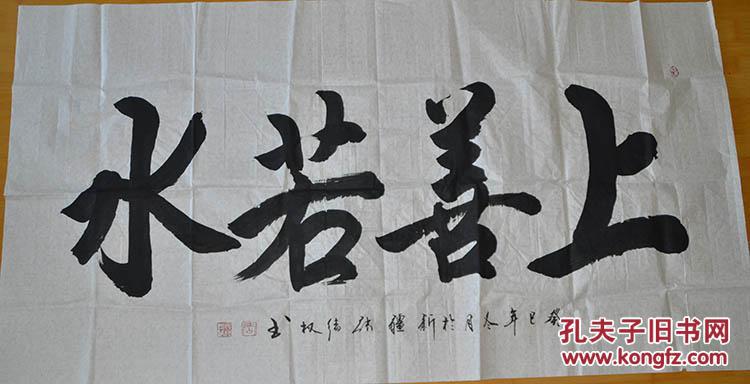 上善若水
癸巳年冬月於新疆
书
孔夫子旧书网
www.kongfz.com